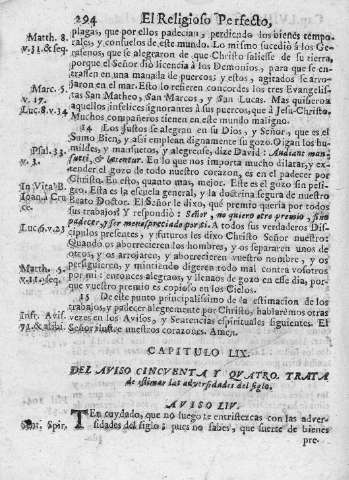 294 El Religioso Perfecto,
Matth. 8. plagas, que por ellos padecian, perdiendo los bienes tempo-
v.31.& seq. rales, y consuelos de este mundo. Lo mismo sucediò à los Ge-
rasenos, que se alegraron de que Christo saliesse de su tierra,
porque el Señor diò licencia à los Demonios, para que se en-
trassen en una manada de puercos; y estos, agitados se arro-
Marc. 5. jaron en el mar. Esto lo refieren concordes los tres Evangelis-
v. 17. tas San Matheo, San Marcos, y San Lucas. Mas quisieron
Luc.8.v.34 aquellos infelices ignorantes à sus puercos, que à Jesu-Christo.
Muchos compañeros tienen en este mundo maligno.
14 Los Justos se alegran en su Dios, y Señor, que es el
Sumo Bien, y assi emplean dignamente su gozo. Oigan los hu-
Psal. 33. mildes, y mansuetos, y alegrense, dize David: Audiant man-
v. 3. sueti, & lætentur. En lo que nos importa mucho dilatar, y ex-
tender el gozo de todo nuestro corazon, es en el padecer por
Christo. En esto, quanto mas, mejor. Este es el gozo sin peli-
In Vita B. gro. Esta es la escuela general, y la doctrina segura de nuestro
Ioan. à Cru Beato Doctor. El Señor le dixo, què premio queria por todos
sus trabajos? Y respondiò: Señor, no quiero otro premio, sino
padecer, y ser menospreciado por ti. A todos sus verdaderos Dis-
Luc.6.v.23 cipulos presentes, y futuros les dixo Christo Señor nuestro:
Quando os aborrecieren los hombres, y os separaren unos de
otros, y os arrojaren, y aborrecieren vuestro nombre, y os
persiguieren, y mintiendo digeren todo mal contra vosotros
Matth. 5. por mi: entonces alegraos, y llenaos de gozo en esse dia, por-
v.11.&seq. que vuestro premio es copioso en los Cielos.
15 De este punto principalissimo de la estimacion de los
trabajos, y padecer alegremente por Christo, hablarèmos otras
Infr. Avis. vezes en los Avisos, y Sentencias espirituales siguientes. El
71.& alibi. Señor ilustre nuestros corazones. Amen.
CAPITULO LIX.
DEL AVISO CINCUENTA Y QUATRO. TRATA
de estimar las adversidades del siglo.
AVISO LIV.
TEn cuydado, que no luego te entristezcas con las adver-
Sent. Spir. sidades del siglo; pues no sabes, que suerte de bienes
pre-